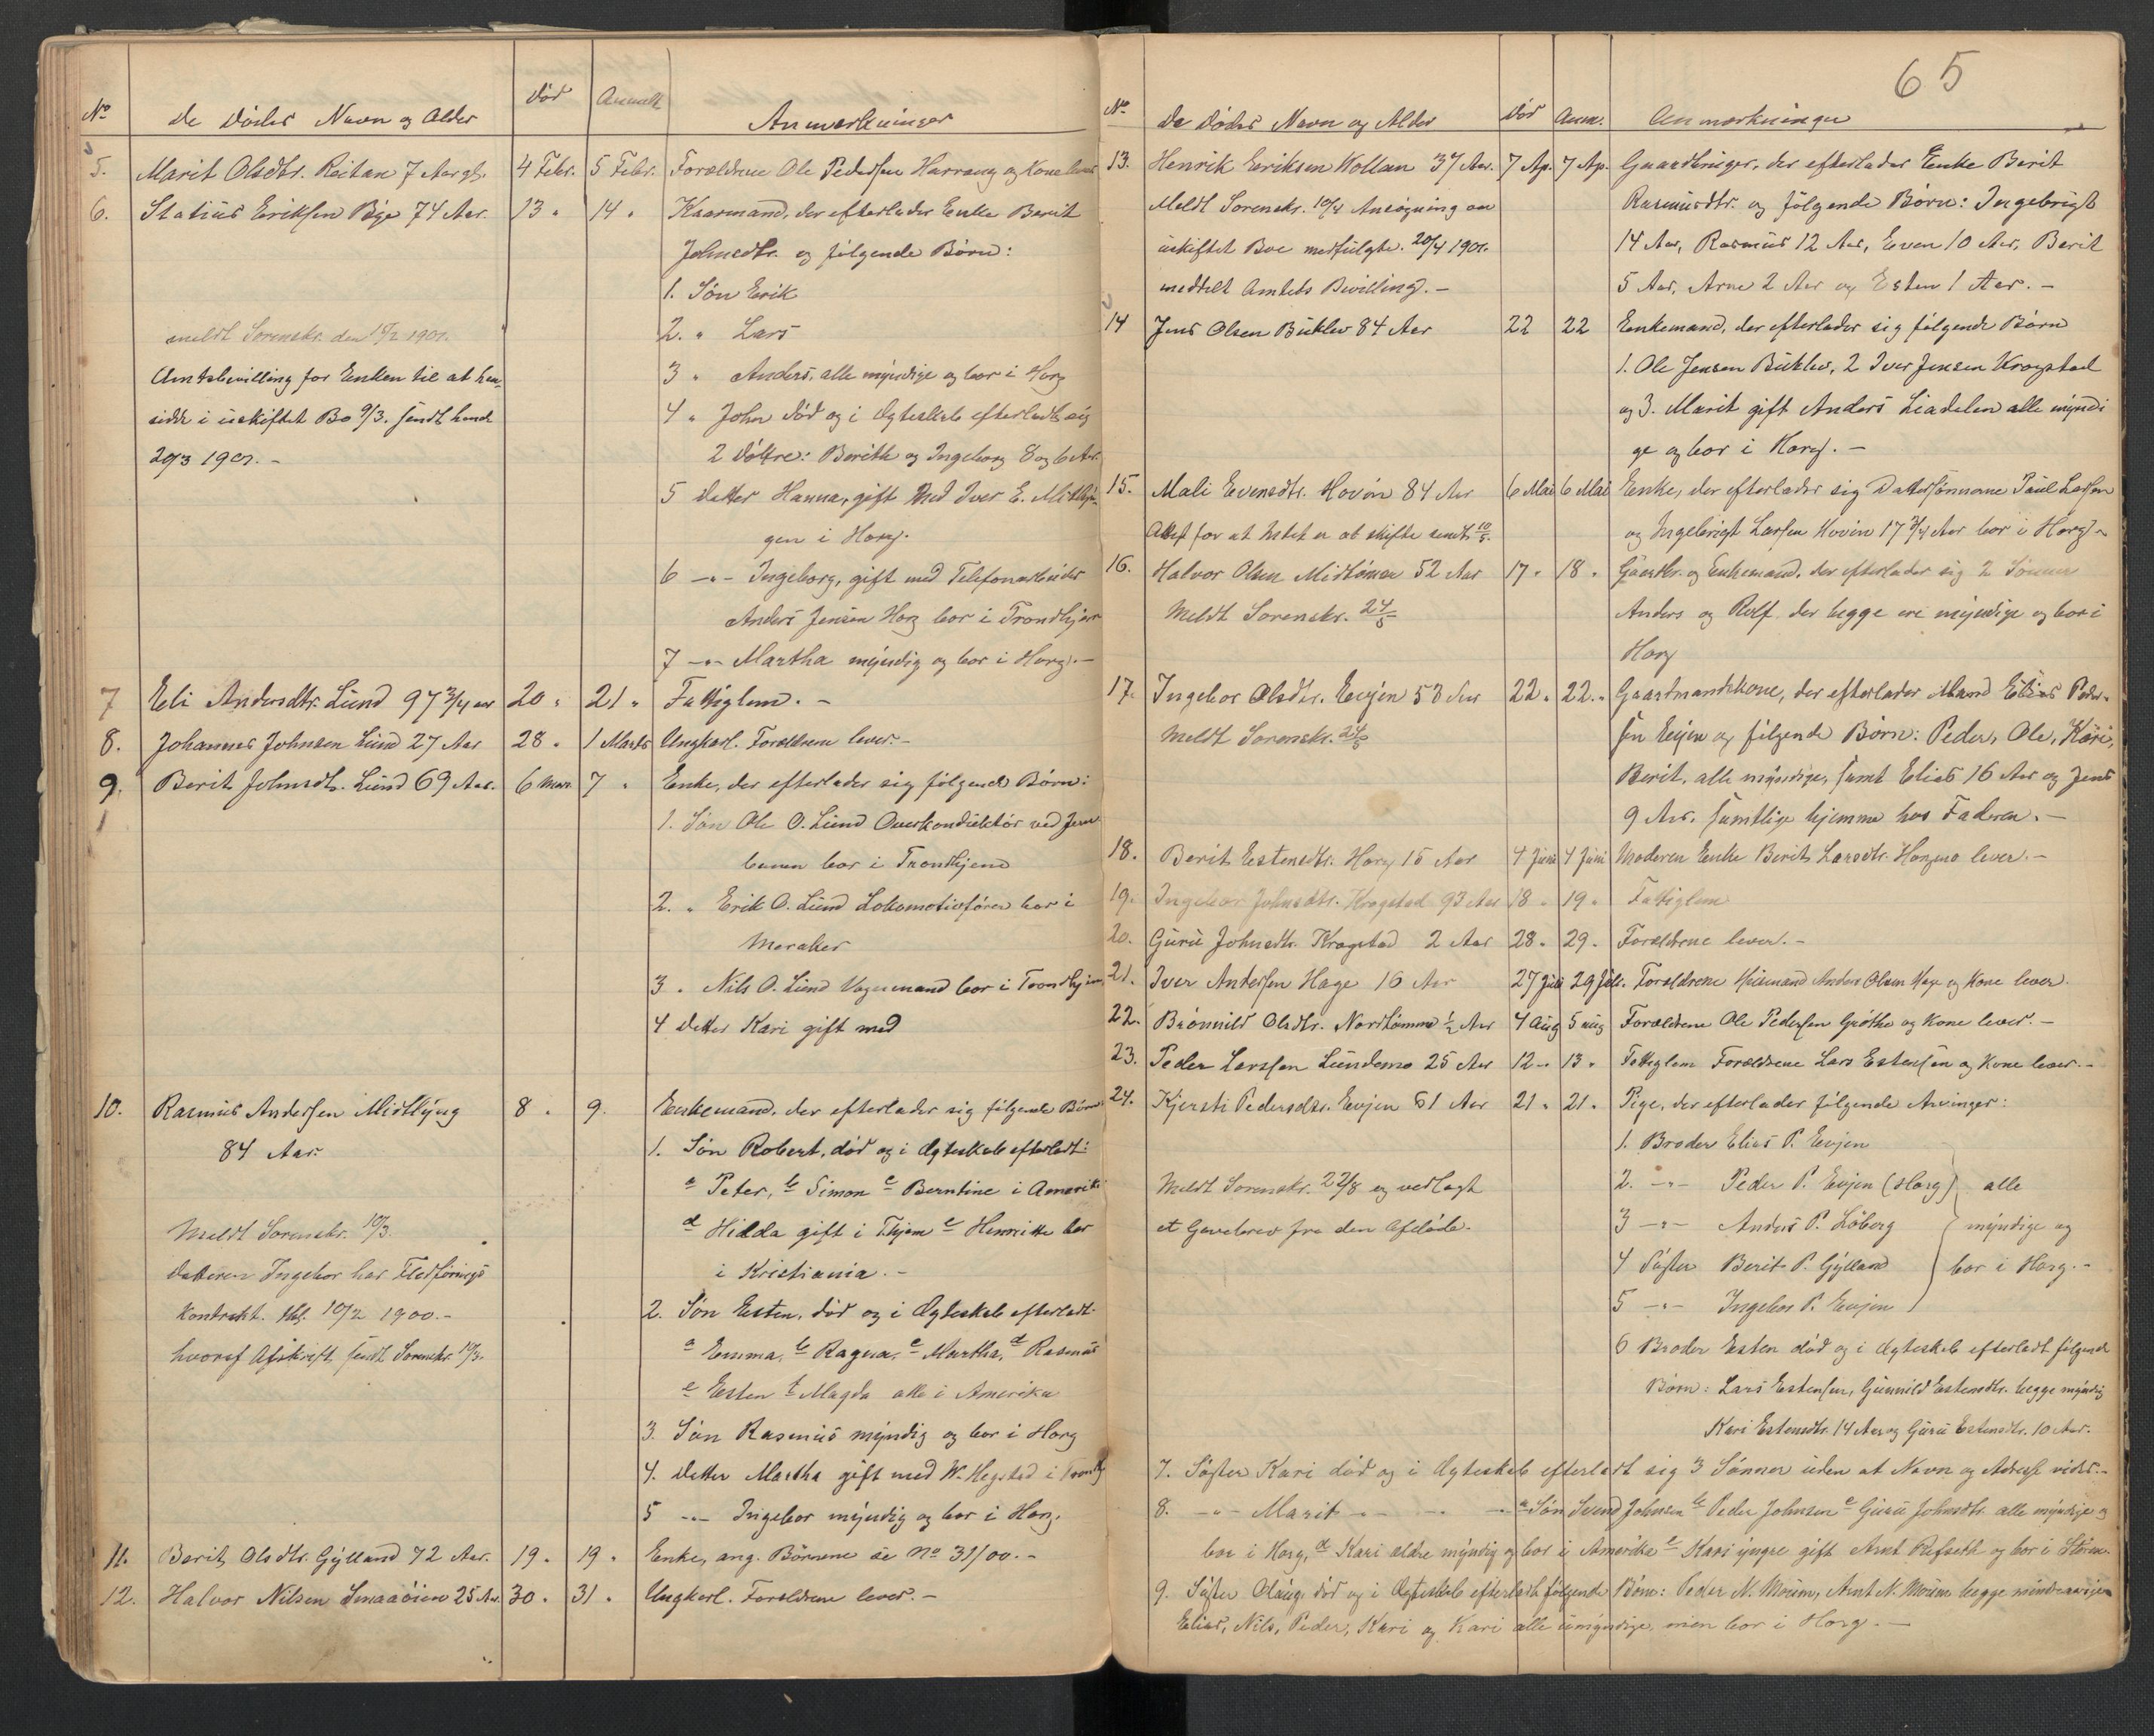 No
De Dødes Navn og Alder
Død
Anmeldt
Anmerkninger
5. Marit Olsdtr. Reitan 7 Aar gl. 4 Febr. 5 Febr. Forældrene Ole Pedersen Harrang og Kone lever
6. Statius Eriksen Bye 74 Aar. 13 " 14 " Kaarmand, der efterlader Enke Berit
Johnsdtr. og følgende Børn:
1. Søn Erik
meldt Sorenskr. den 15/2 1901. 2. " Lars
Amtsbevilling for Enken til at hen- 3 " Anders, alle myndige og bor i Horg
sidde i uskiftet Bo 9/3. sendt hende 4 " John død og i Ægteskab efterladt sig
20/3 1901.- 2 Døttre: Berith og Ingeborg 8 og 6 Aar.
5 Datter Hanna, gift med Iver E. Midtlyn-
gen i Horg.
6 -"- Ingeborg, gift med Telefonarbeider
Anders Jensen Horg bor i Trondhjem
7 -"- Martha myndig og bor i Horg.-
7 Eli Andersdtr. Lund 97 3/4 aar 20 " 21 " Fattiglem. -
8. Johannes Johnsen Lund 27 Aar 28 " 1 Marts Ungkarl. Forældrene lever.-
9. Berit Johnsdtr. Lund 69 Aar. 6 Mar. 7 " Enke, der efterlader sig følgende Børn:
1. Søn Ole O. Lund Overkonduktør ved Jern-
banen bor i Trondhjem
2. " Erik O. Lund Lokomotivfører bor i
Meraker
3 " Nils O. Lund Vognmand bor i Trondhjem
4 Datter Kari gift med
10. Rasmus Andersen Midtlyng 8 " 9. Enkemand, der efterlader sig følgende Børn:
84 Aar. 1. Søn Robert, død og i Ægteskab efterladt:
a Peter, b Simon c Berntine i Amerika
Meldt Sorenskr. 10/3. d Hilda gift i Thjem e Henrikke bor
Datteren Ingebor har Fledførings i Kristiania.-
Kontrakt. thl. 10/2 1900.- 2. Søn Esten, død og i Ægteskab efterladt.
hvoraf Afskrift sendt Sorenskr. 10/3. a Emma, b Ragna, c Martha, d Rasmus
e Esten f Magda alle i Amerika
3. Søn Rasmus myndig og bor i Horg
4. Datter Martha gift med W. Hegstad i Trondhj
5 -"- Ingebor myndig og bor i Horg.
11. Berit Olsdtr. Gylland 72 Aar. 19 " 19 " Enke, ang. Børnene se No 31/00.-
12. Halvor Nilsen Smaaøien 25 Aar. 30 " 31 " Ungkarl. Forældrene lever.-
65
No
De Dødes Navn og Alder
Død
Anm.
Anmerkninger
13. Henrik Eriksen Wollan 37 Aar. 7 Ap. 7 Ap. Gaardbruger, der efterlader Enke Berit
Meldt Sorenskr. 10/4 Ansøgning om Rasmusdtr. og følgende Børn: Ingebrigt
uskiftet Boe medfulgte. 20/4 1901. 14 Aar, Rasmus 12 Aar, Even 10 Aar, Berit
meddelt Amtets Bevilling.- 5 Aar, Arne 2 Aar og Esten 1 Aar.-
14 Jens Olsen Buklev 84 Aar 22 22 Enkemand, der efterlader sig følgende Børn
1. Ole Jensen Buklev, 2 Iver Jensen Krogstad
og 3. Marit gift Anders Liadelen alle myndi
ge og bor i Horg.-
15. Mali Evensdtr. Hovin 84 Aar 6 Mai 6 Mai Enke, der efterlader sig Dattersønnerne Paul Larsen
Attest for at Intet er at skifte sendt 10/5. og Ingebrigt Larsen Hovin 17 3/4 Aar bor i Horg-
16. Halvor Olsen Midtømen 52 Aar 17 " 18 " Gaardbr. og Enkemand, der efterlader sig 2 Sønner
Meldt Sorenskr. 24/5 Anders og Rolf der begge ere myndige og bor i
Horg
17. Ingebor Olsdtr. Evjen 53 Aar 22 " 22 " Gaardmandskone, der efterlader Mand Elias Peder-
Meldt Sorenskr. 24/5 sen Evjen og følgende Børn: Peder, Ole, Kari,
Berit, alle myndige, samt Elias 16 Aar og Jens
9 Aar. samtlige hjemme hos Faderen.-
18. Berit Estensdtr. Horg 15 Aar 4 Juni 4 Juni Moderen Enke Berit Larsdtr. Horgmo lever.-
19. Ingebor Johnsdtr. Krogstad 93 Aar 18 " 19 " Fattiglem
20. Guru Johnsdtr. Krogstad 2 Aar 28 " 29 " Forældrene lever.-
21. Iver Andersen Hage 16 Aar 27 Juli 29 Juli. Forældrene Husmand Anders Olsen Hage og Kone lever.
22. Brønnild Olsdtr. Nordtømme 1/2 Aar 4 Aug 5 aug Forældrene Ole Pedersen Grøthe og Kone lever.-
23. Peder Larssen Lundemo 25 Aar 12 " 13 " Fattiglem Forældrene Lars Estensen og Kone lever.-
24. Kjersti Pedersdtr. Evjen 61 Aar 21 " 21 " Pige, der efterlader følgende Arvinger:
1. Broder Elias P. Evjen
Meldt Sorenskr. 22/8 og vedlagt 2. -"- Peder P. Evjen (Horg) alle
et Gavebrev fra den Afdøde. 3 -"- Anders P. Løberg myndige og
4 Søster Berit P. Gylland bor i Horg.-
5 -"- Ingebor P. Evjen
6 Broder Esten død og i Ægteskab efterladt følgende
Børn: Lars Estensen, Gunnild Estensdtr. begge myndig
Kari Estensdtr. 14 Aar og Guru Estensdtr. 10 Aar.
7. Søster Kari død og i Ægteskab efterladt sig 3 Sønner uden at Navn og Adresse vides.-
8. -"- Marit -"- a Søn Svend Johnsen b Peder Johnsen c Guru Johnsdtr. alle myndige og
bor i Horg, d Kari ældre myndig og bor i Amerika e Kari yngre gift Arnt Refseth og bor i Støren.
9. Søster Olaug, død og i Ægteskab efterladt følgende Børn: Peder N. Moum, Arnt N. Moum begge mindreaarige
Elias, Nils, Peder, Kari og Kari alle umyndige, men bor i Horg.-